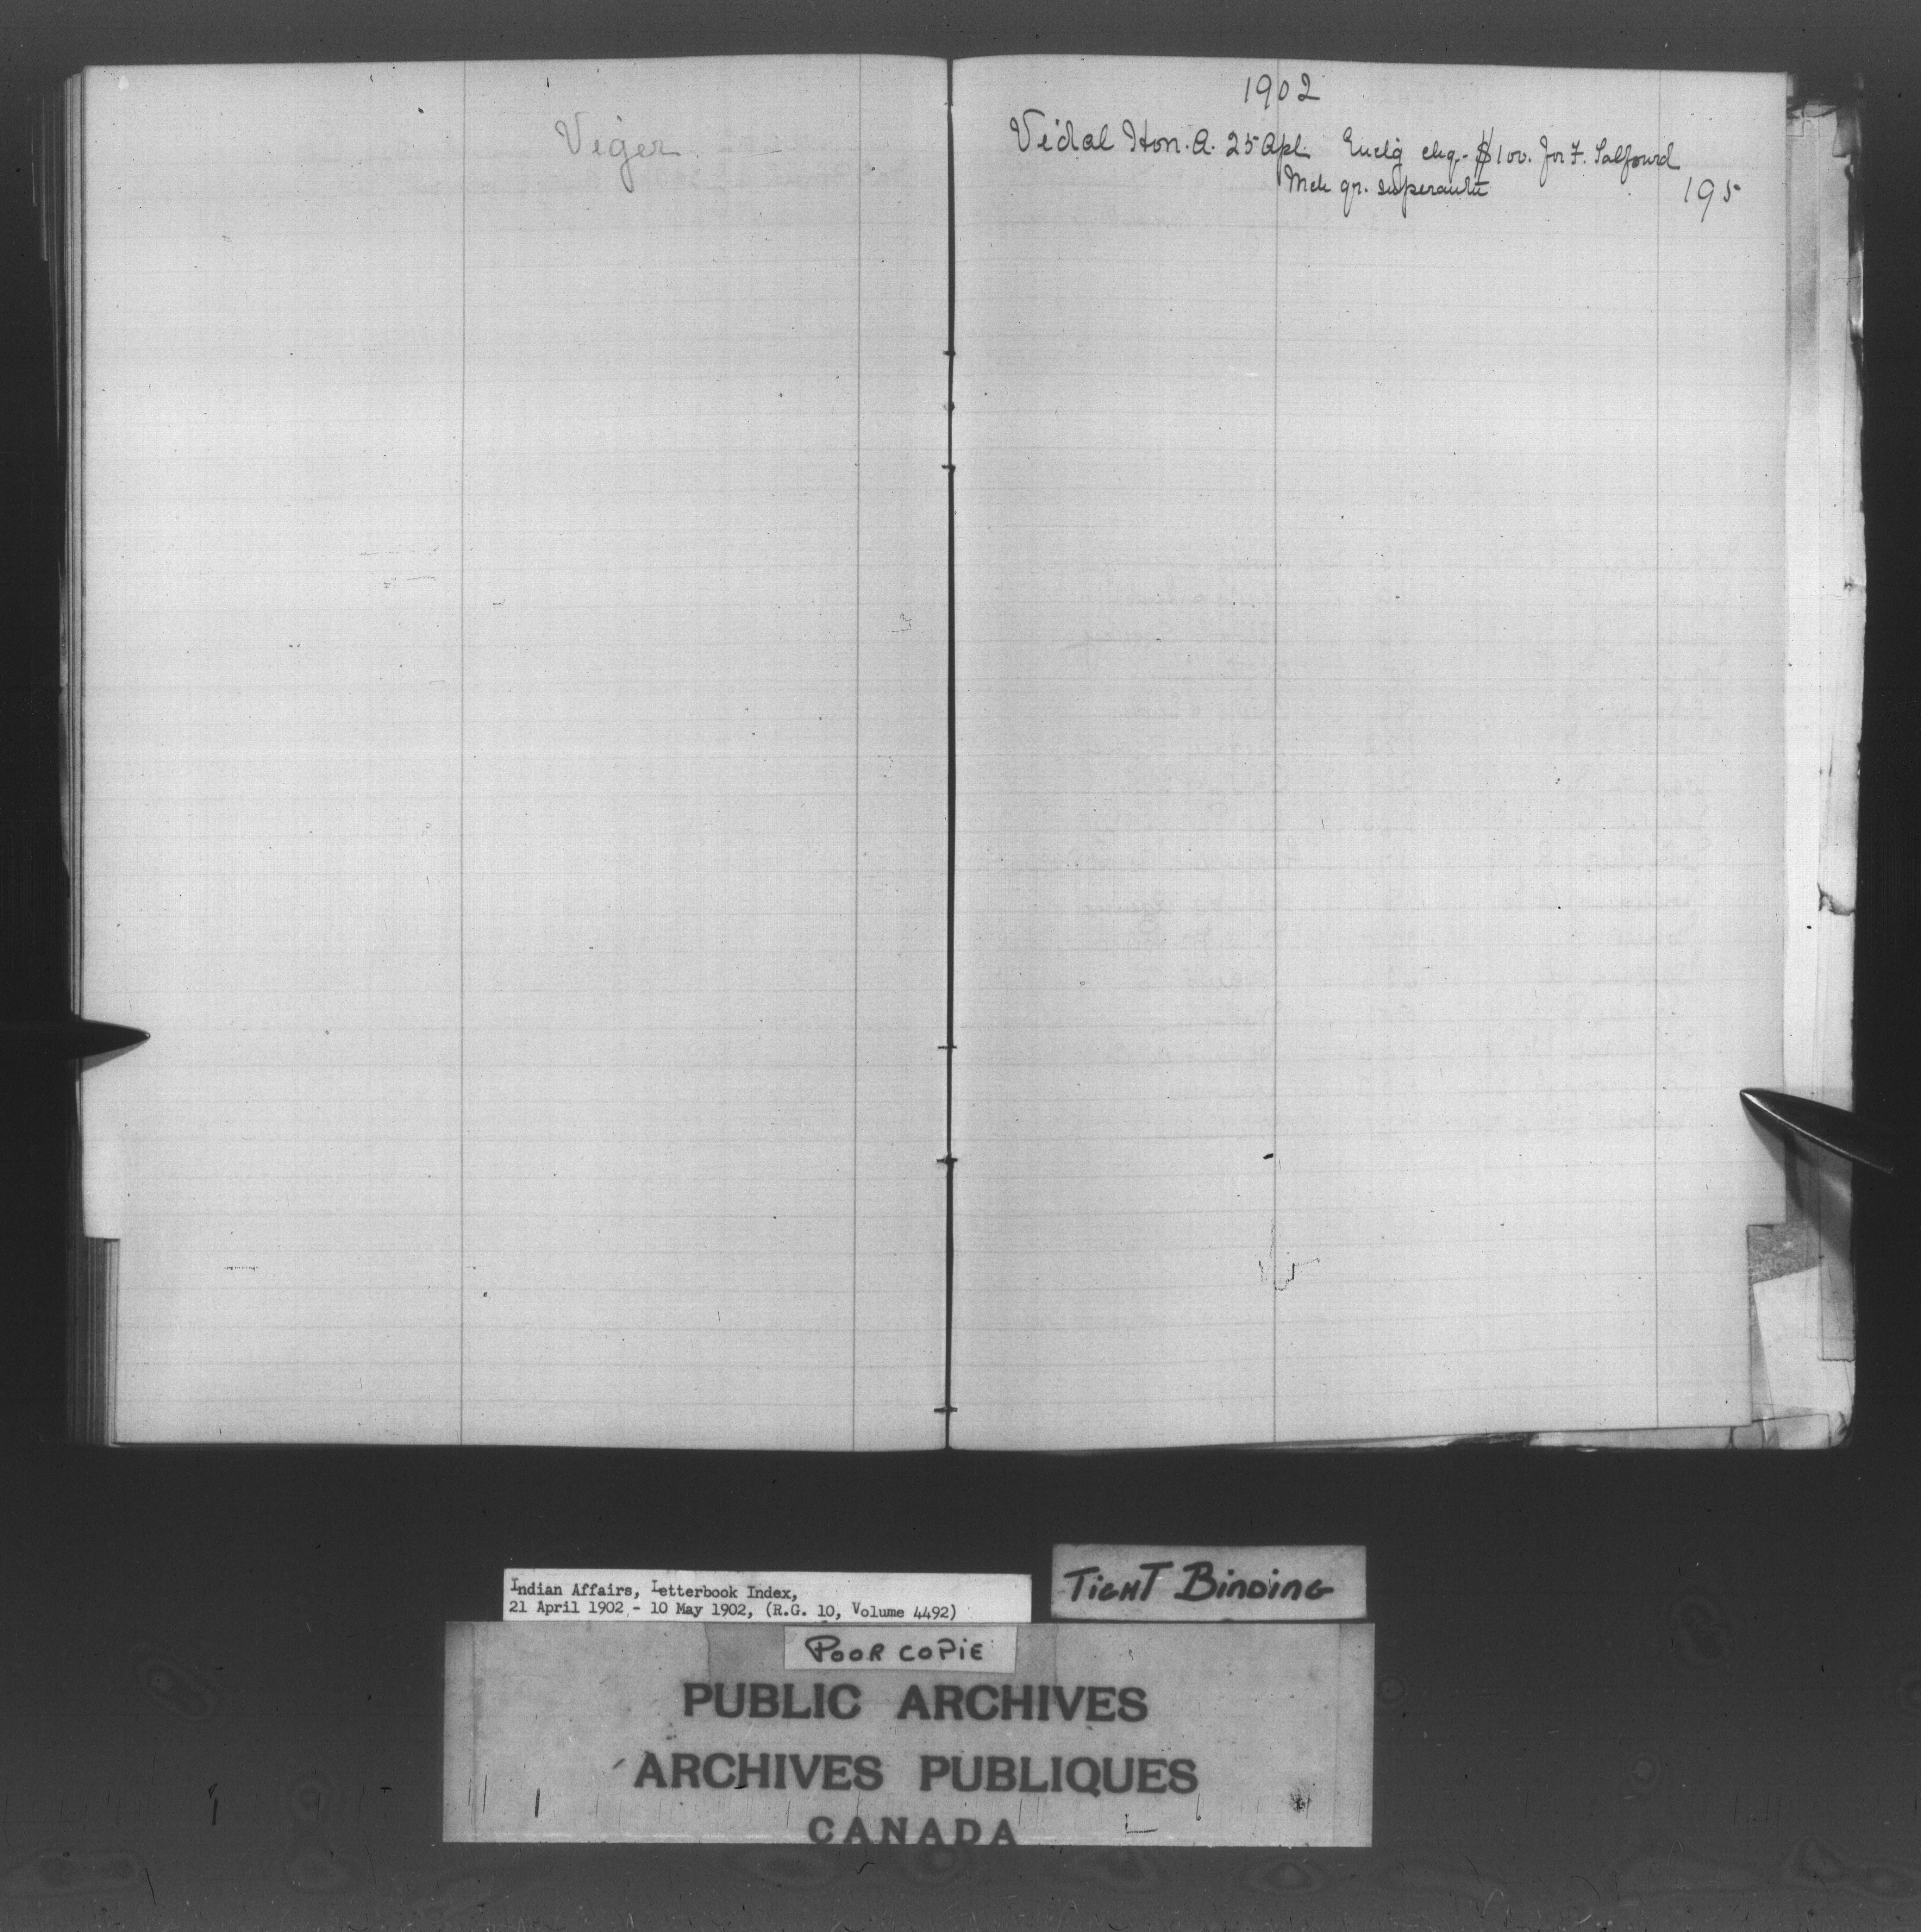 Viger
1902
Vidal Hon. A. 25 Apl. Enclg chq. $100. for F. Salfourd
Mch qr. superantn
195
Indian Affairs, Letterbook Index,
21 April 1902 - 10 May 1902, (R.G. 10, Volume 4492)
TIGHT BINDING
POOR COPIE
PUBLIC ARCHIVES
ARCHIVES PUBLIQUES
CANADA